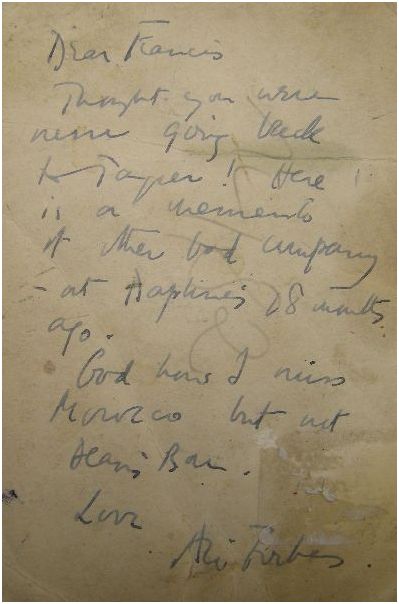 Dear Francis
Thought you were
never going back
to Tangier! Here
is a memento
of other bad company
- at 18 months
ago.
God how I miss
Morocco but not
Bar.
Love
Ali Forbes.